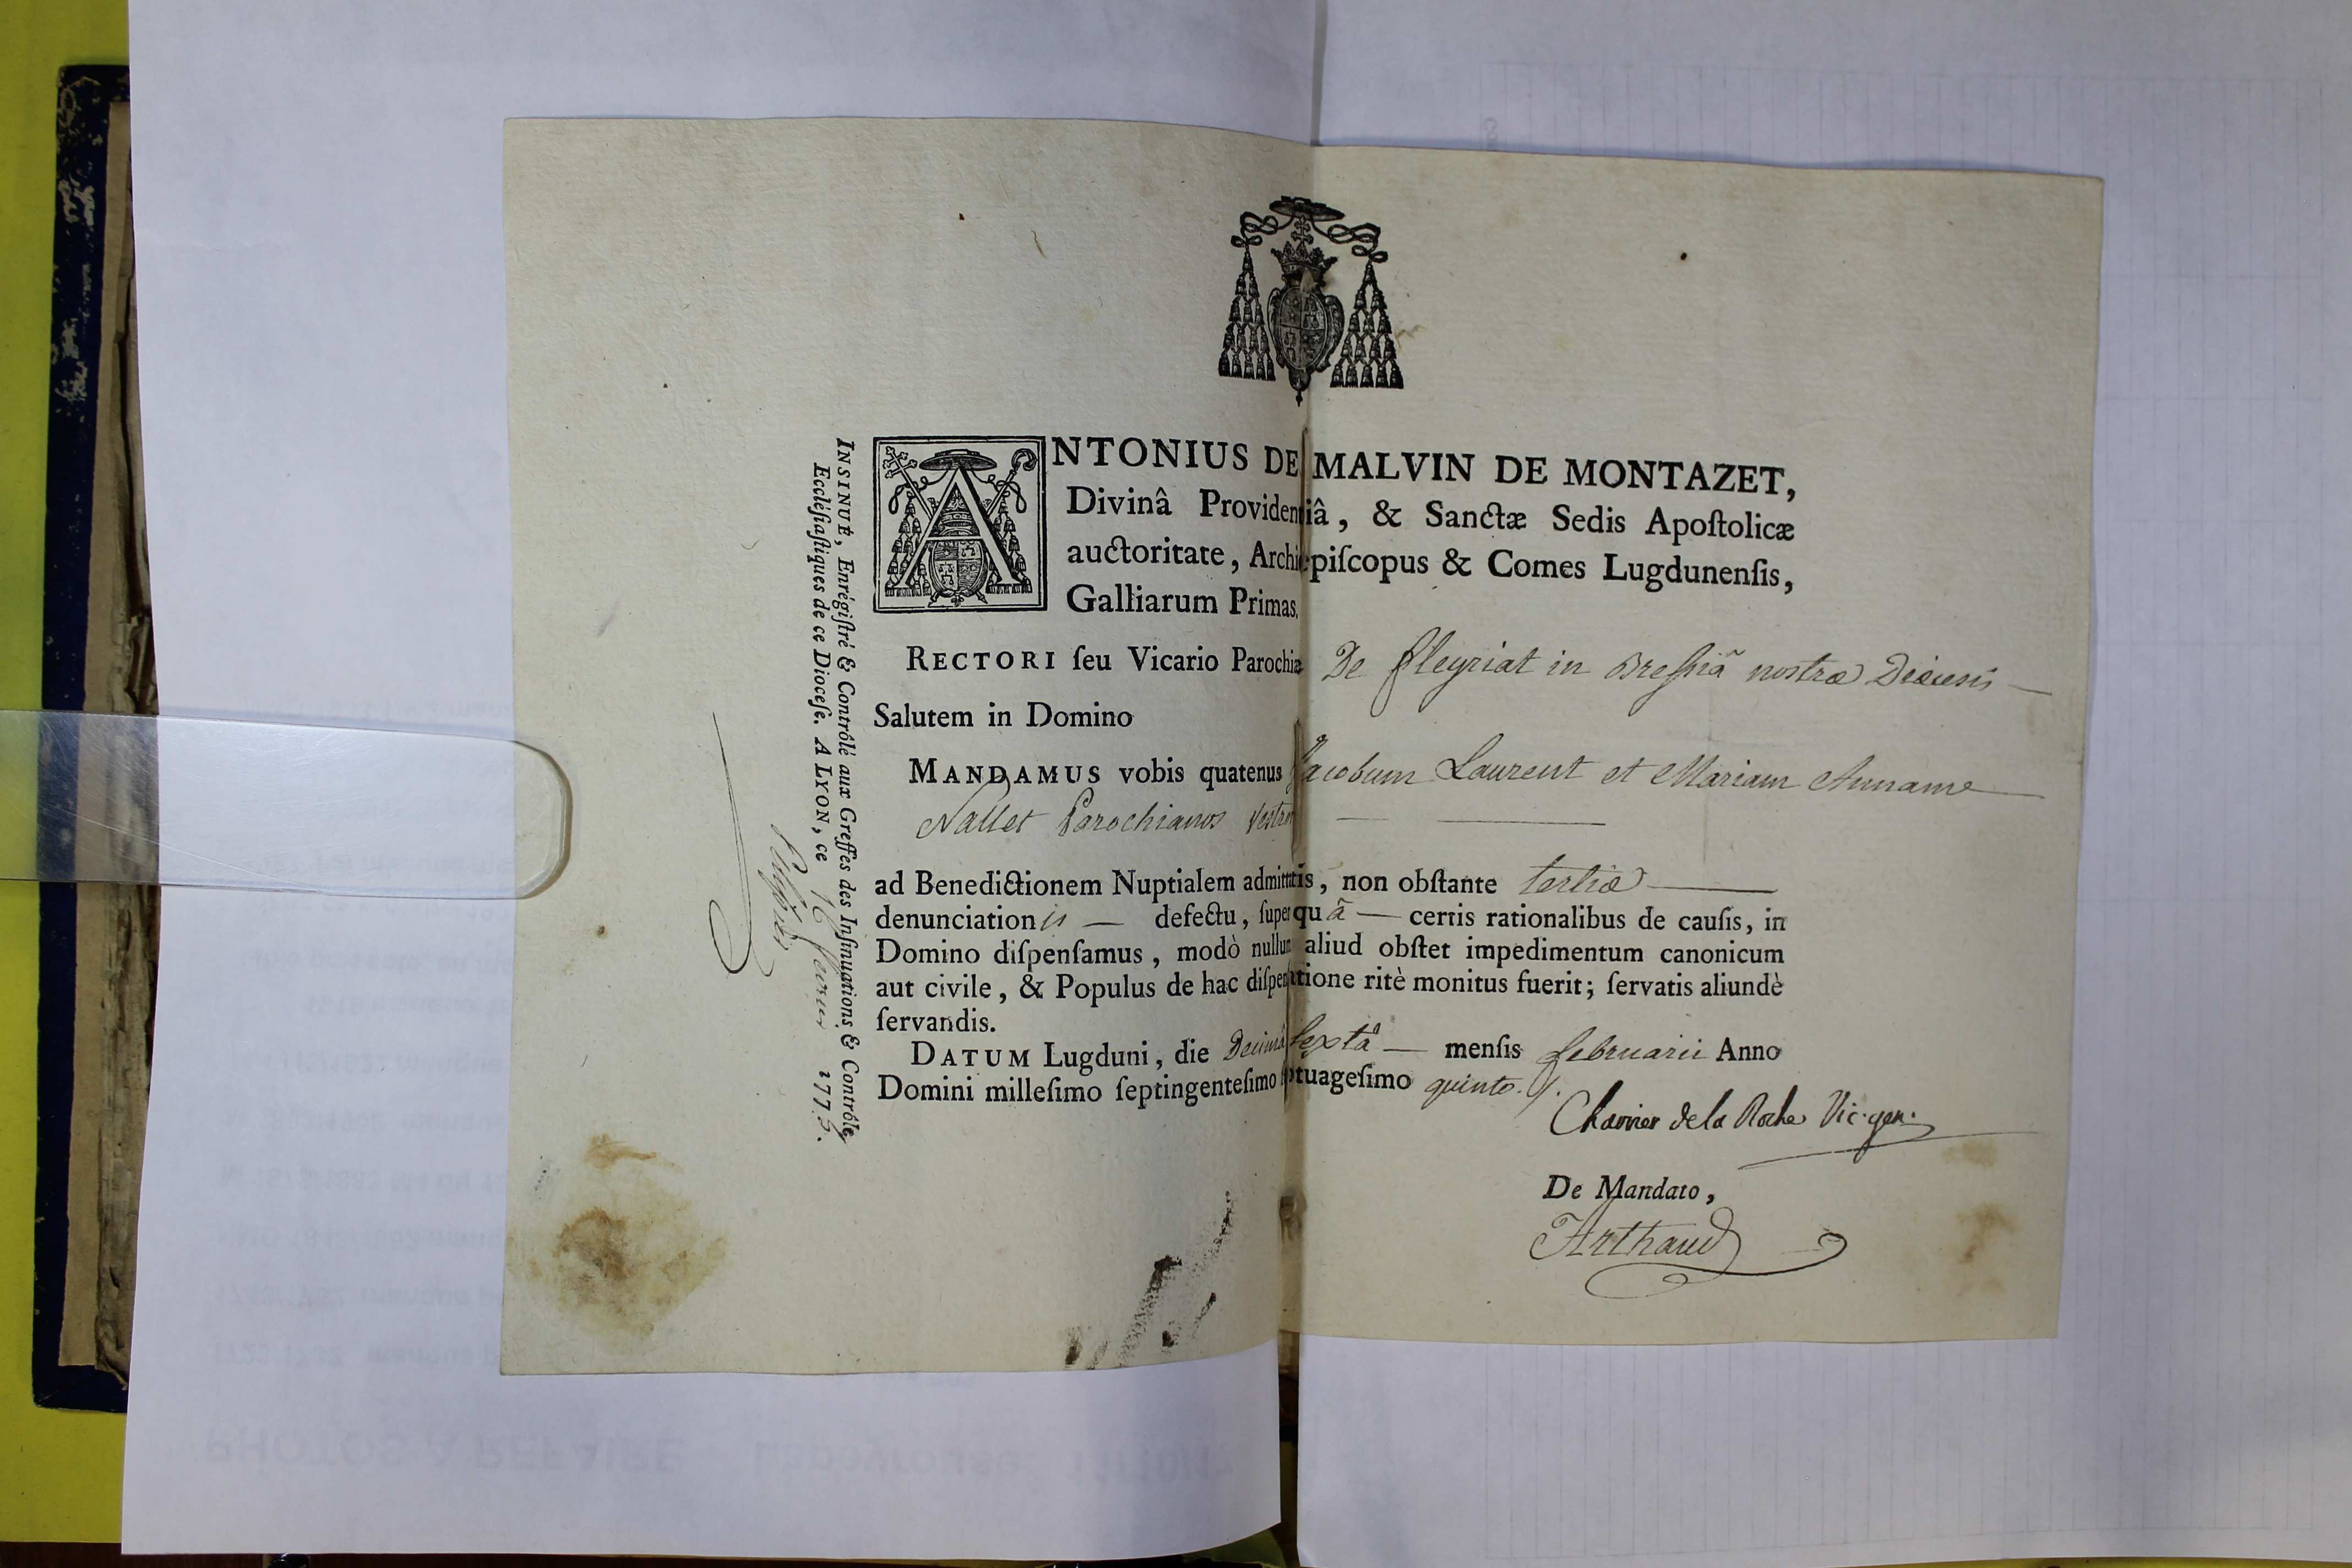 ANTONIUS DE MALVIN DE MONTAZET,
Divinâ Providentiâ, & Sanctæ Sedis Apoſtolicæ
auctoritate, Archiepiſcopus & Comes Lugdunenſis,
Galliarum Primas,
RECTORI ſeu Vicario Parochiæ De fleyriat in Bressiâ nostræ Diœcesis —
Salutem in Domino
MANDAMUS vobis quatenus Jacobum Laurent et Mariam Annam
Nallet Parochianos vestros —
ad Benedictionem Nuptialem admittatis, non obſtante tertiæ —
denunciationis — defectu, ſuper quâ — certis rationalibus de cauſis, in
Domino diſpenſamus, modò nullum aliud obſtet impedimentum canonicum
aut civile, & Populus de hac diſpenſatione ritè monitus fuerit; ſervatis aliundè
ſervandis.
DATUM Lugduni, die Decimâ sextâ — menſis februarii Anno
Domini milleſimo ſeptingenteſimo ſeptuageſimo quinto.
de la Roche Vic. gen.
De Mandato,
Arthaud
INSINUÉ, Enrégiſtré & Contrôlé aux Greffes des Inſinuations & Contrôle
Eccléſiaſtiques de ce Dioceſe. A LYON, ce 16 fevrier 1775.
PHOTOS A REFAIRE Lapeyrouse